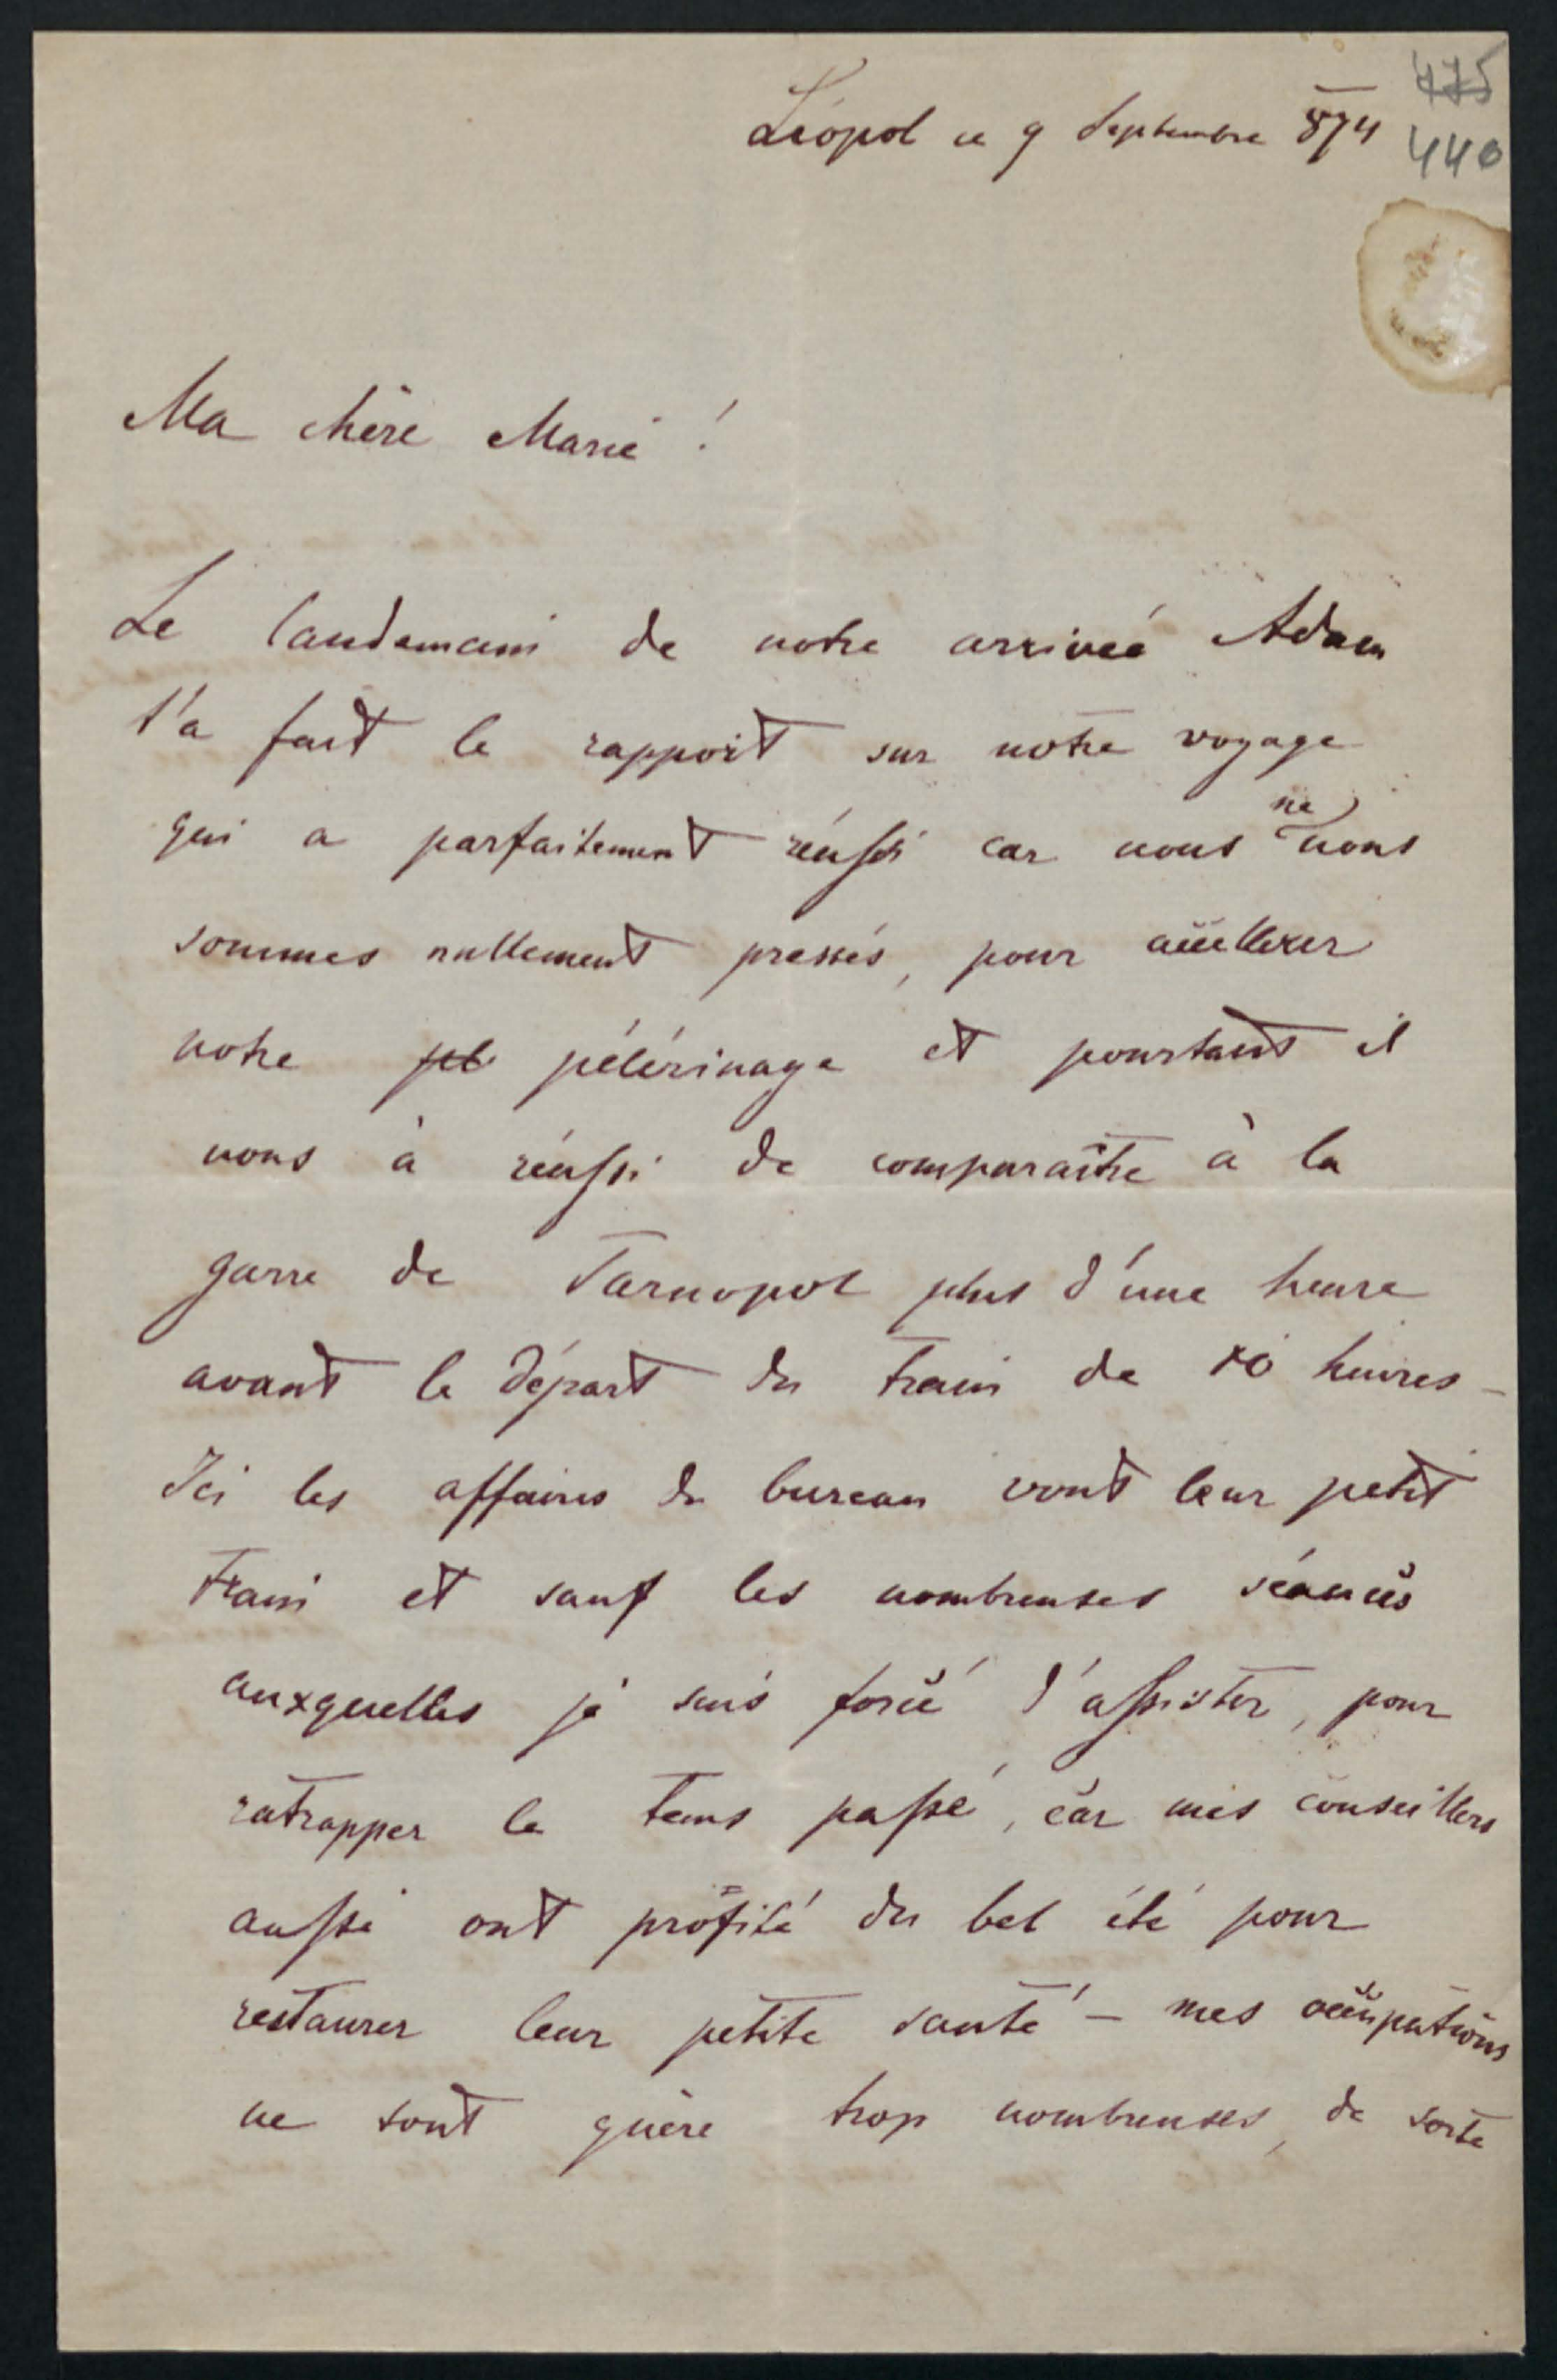 475
Léopol ce 9 Septembre 874
440
Ma chère Marie !
Le landemain de notre arriveé Adam
t'a fait le rapport sur notre voyage
qui a parfaitement réussi car nous ne nous
sommes nullement pressés, pour accellerer
notre pel pélérinage et pourtant il
nous à réussi de comparaître à la
garre de Tarnopol plus d'une heure
avant le départ du train de 10 heures –
Ici les affaires du bureau vont leur petit
train et sauf les nombreuses séances
auxquelles je suis forcé d'assister, pour
ratrapper le tems passé, car mes conseillers
aussi ont profité du bel été pour
restaurer leur petite santé – mes occupations
ne sont guère trop nombreuses, de sorte